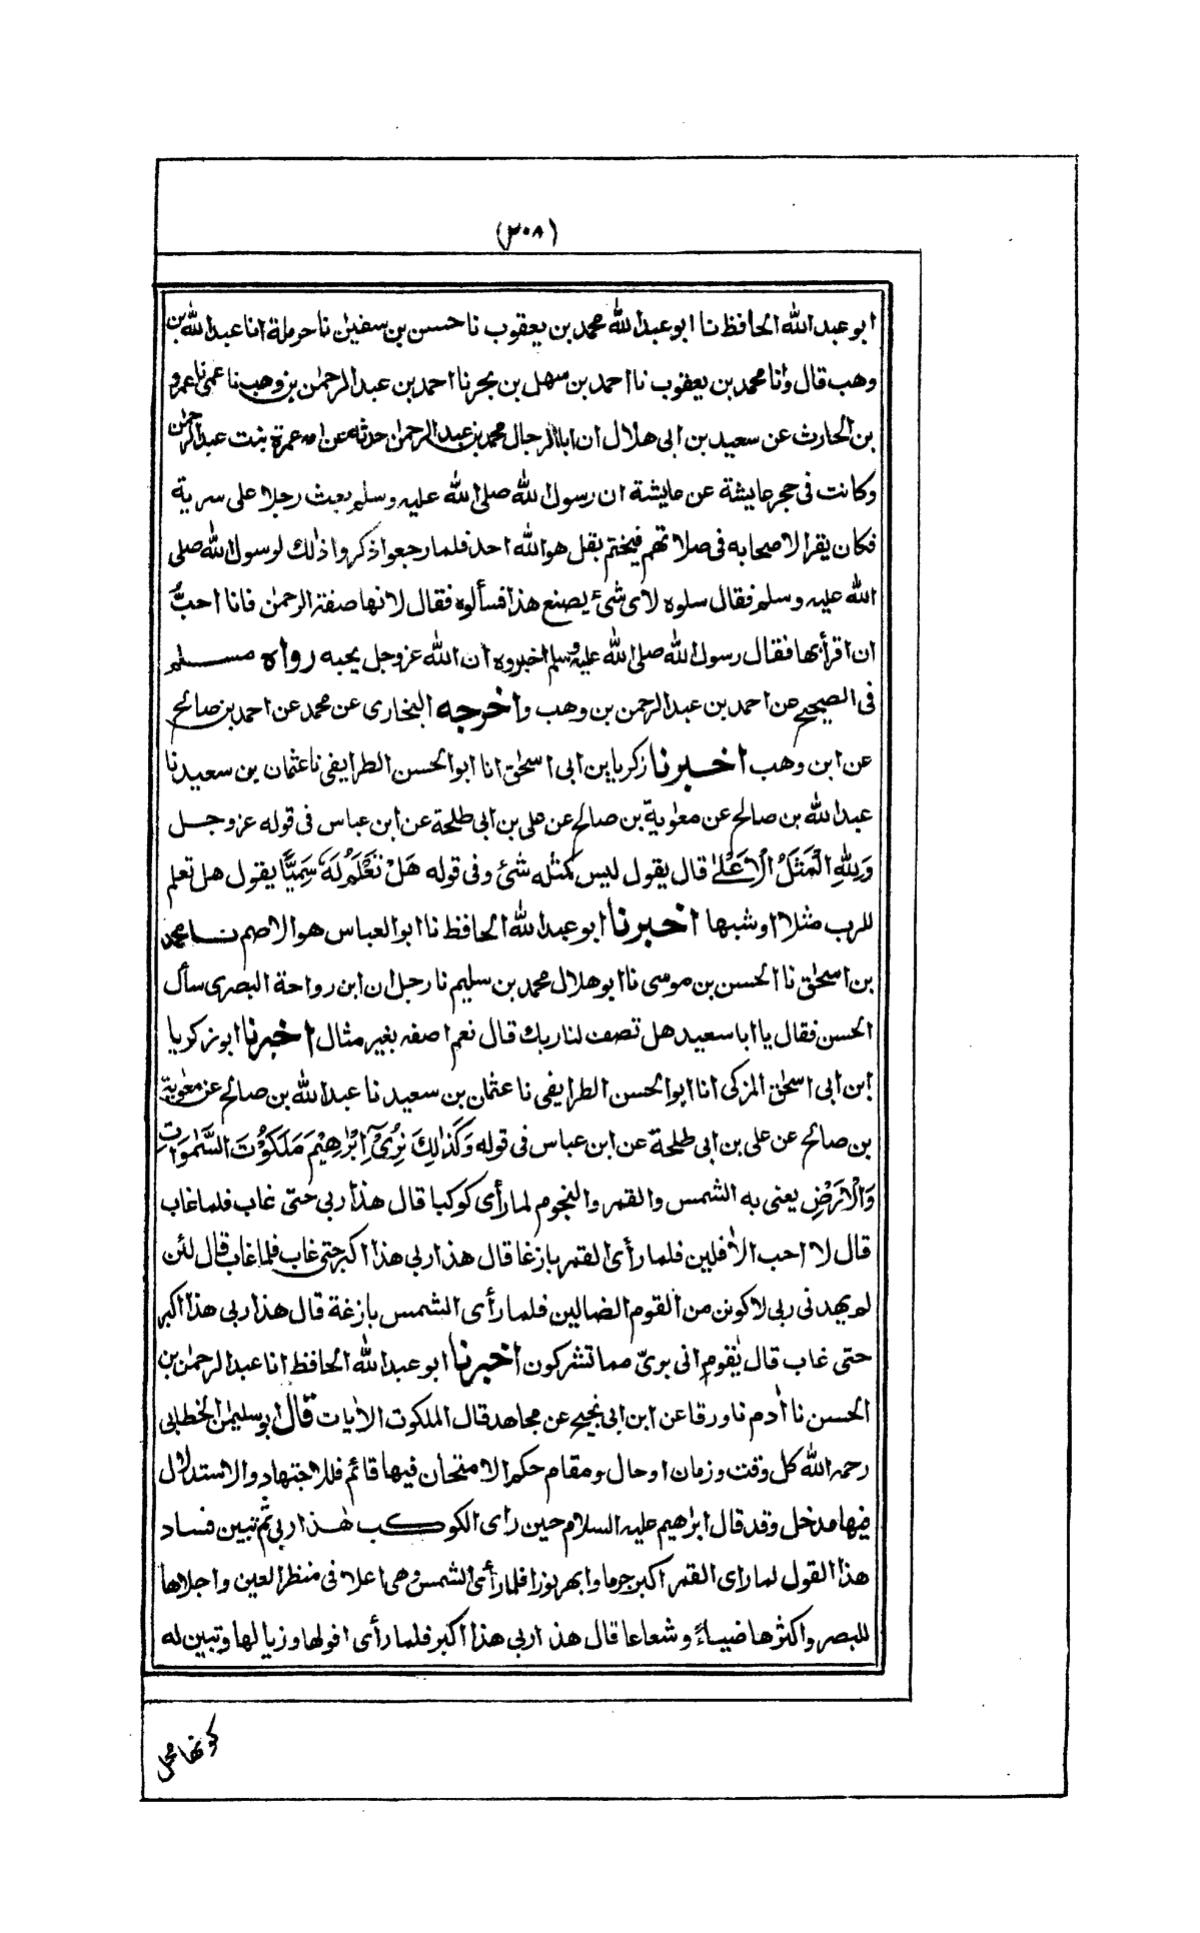 (٢٠٨)
ابو عبد الله الحافظ نا ابو عبد الله محمد بن يعقوب نا حسن بن سفين نا حرملة انا عبد الله بن
وهب قال وانا محمد بن يعقوب نا احمد بن سهل بن بحر نا احمد بن عبد الرحمن بن وهب نا عمى نا عمرو
بن الحارث عن سعيد بن ابى هلال ان ابا الرجال محمد بن عبد الرحمن حدثه عن امه عمرة بنت عبد الرحمن
وكانت فى حجر عايشة عن عايشة ان رسول الله صلى الله عليه وسلم بعث رجلا على سرية
فكان يقرا لاصحابه فى صلاتهم فيختم بقل هو الله احد فلما رجعوا ذكروا ذلك لرسول الله صلى
الله عليه وسلم فقال سلوه لاى شئ يصنع هذا فسألوه فقال لانها صفة الرحمن فانا احبُّ
ان اقرأ بها فقال رسول الله صلى الله عليه وسلم اخبروه ان الله عز وجل يحبه رواه مسلم
فى الصحيح عن احمد بن عبد الرحمن بن وهب واخرجه البخارى عن محمد عن احمد بن صالح
عن ابن وهب اخبرنا زكريا بن ابى اسحٰق انا ابو الحسن الطرايفى نا عثمان بن سعيد نا
عبد الله بن صالح عن معٰوية بن صالح عن على بن ابى طلحة عن ابن عباس فى قوله عز وجل
وَلِلّٰهِ الْمَثَلُ الْاَعْلٰى قال يقول ليس كمثله شئ وفى قوله هَلْ تَعْلَمُ لَهٗ سَمِيًّا يقول هل تعلم
للرب مثلا او شبها اخبرنا ابو عبد الله الحافظ نا ابو العباس هو الاصم نا محمد
بن اسحٰق نا الحسن بن موسى نا ابو هلال محمد بن سليم نا رجل ان ابن رواحة البصرى سأل
الحسن فقال يا ابا سعيد هل تصف لنا ربك قال نعم اصفه بغير مثال اخبرنا ابو زكريا
ابن ابى اسحٰق المزكى انا ابو الحسن الطرايفى نا عثمان بن سعيد نا عبد الله بن صالح عن معٰوية
بن صالح عن على بن ابى طلحة عن ابن عباس فى قوله وَكَذٰلِكَ نُرِىْٓ اِبْرٰهِيْمَ مَلَكُوْتَ السَّمٰوٰتِ
وَالْاَرْضِ يعنى به الشمس والقمر والنجوم لما رأى كوكبا قال هذا ربى حتى غاب فلما غاب
قال لا احب الاٰفلين فلما رأى القمر بازغا قال هذا ربى هذا اكبر حتى غاب فلما غاب قال لئن
لم يهدنى ربى لاكونن من القوم الضالين فلما رأى الشمس بازغة قال هذا ربى هذا اكبر
حتى غاب قال يٰقوم انى برىّ مما تشركون اخبرنا ابو عبد الله الحافظ انا عبد الرحمٰن بن
الحسن نا اٰدم نا ورقا عن ابن ابى نجيح عن مجاهد قال الملكوت الاٰيات قال ابو سليمٰن الخطابى
رحمه الله كل وقت وزمان او حال ومقام حكم الامتحان فيها قائم فللاجتهاد والاستدلال
فيها مدخل وقد قال ابرٰهيم عليه السلام حين راى الكوكب هٰذا ربى ثم تبين فساد
هذا القول لما راى القمر اكبر جرما وابهر نورا فلما رأى الشمس وهى اعلا فى منظر العين واجلاها
للبصر واكثرها ضياءً وشعاعا قال هذا ربى هذا اكبر فلما رأى افولها وزيالها وتبين له
كونها محل